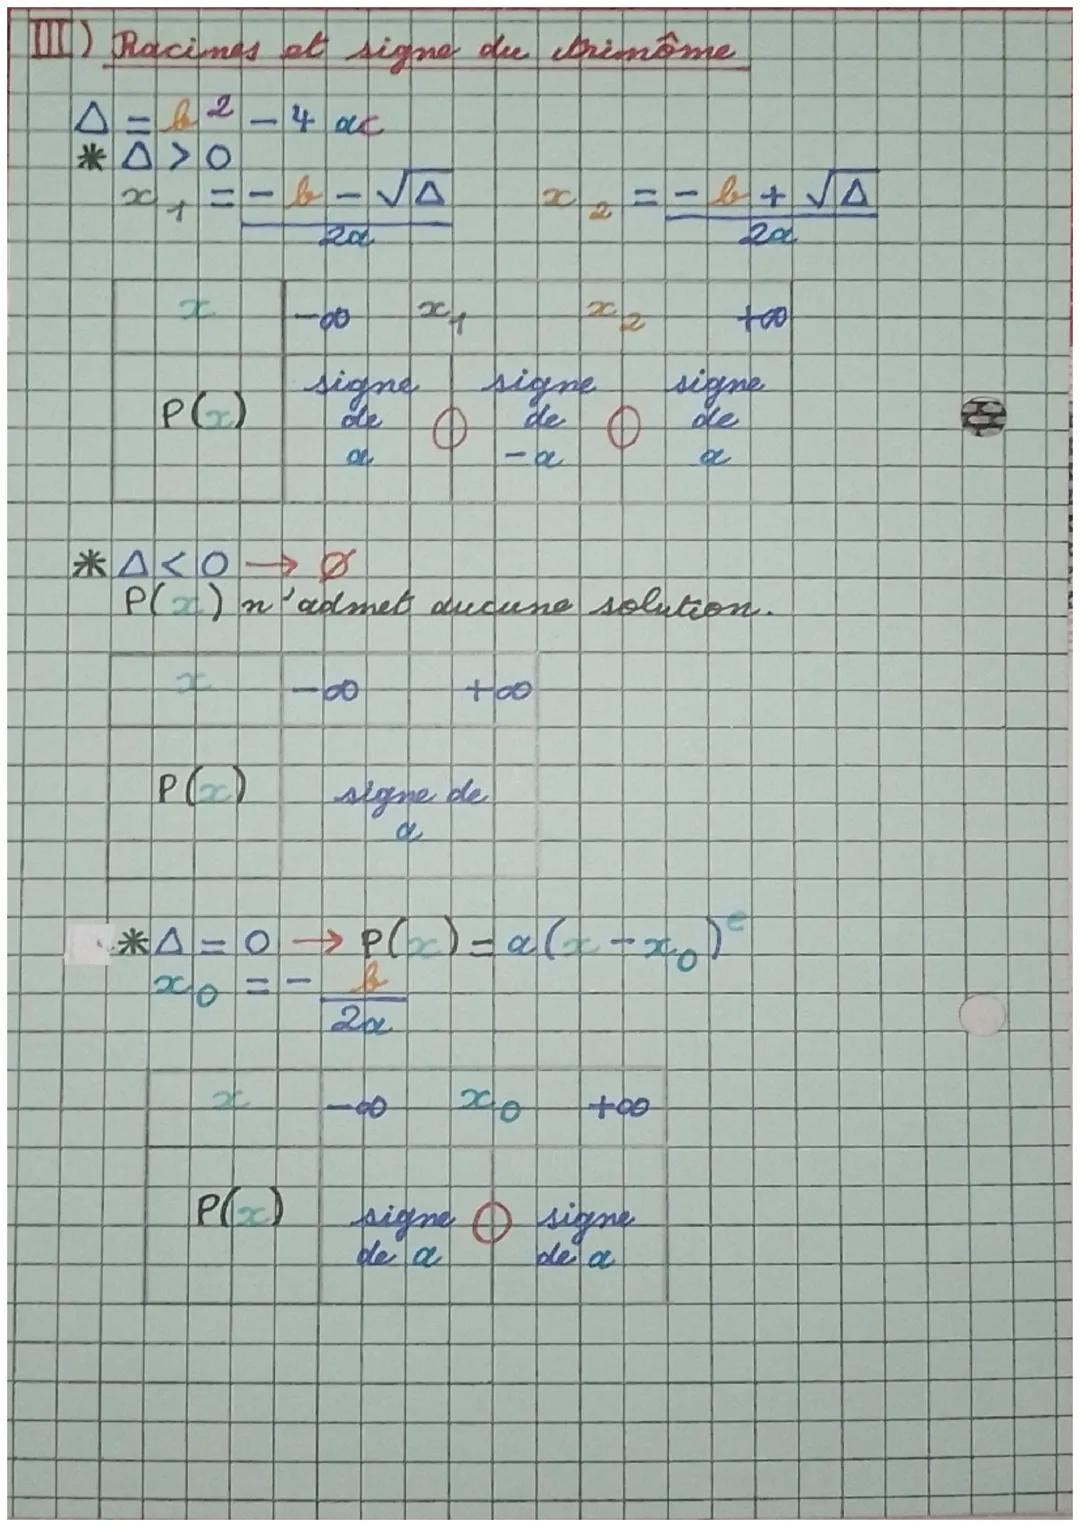 III) Racines et signe du trinôme
Δ = b² - 4ac
* Δ > 0
x₁ = (-b - √Δ) / 2a    x₂ = (-b + √Δ) / 2a
x    -∞    x₁    x₂    +∞
P(x)    signe de a    0    signe de -a    0    signe de a
* Δ < 0 → ∅
P(x) n'admet aucune solution.
x    -∞    +∞
P(x)    signe de a
* Δ = 0 → P(x) = a(x - x₀)²
x₀ = - b / 2a
x    -∞    x₀    +∞
P(x)    signe de a    0    signe de a